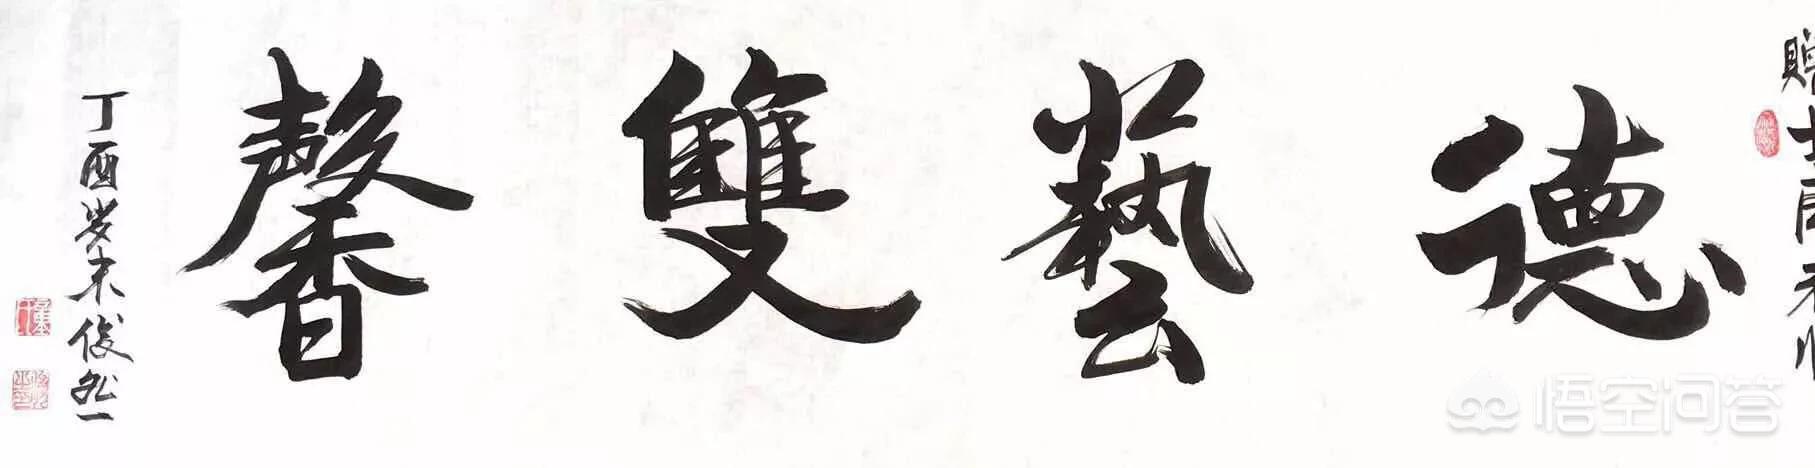 贈
德藝雙馨
丁酉岁末俊
悟空问答